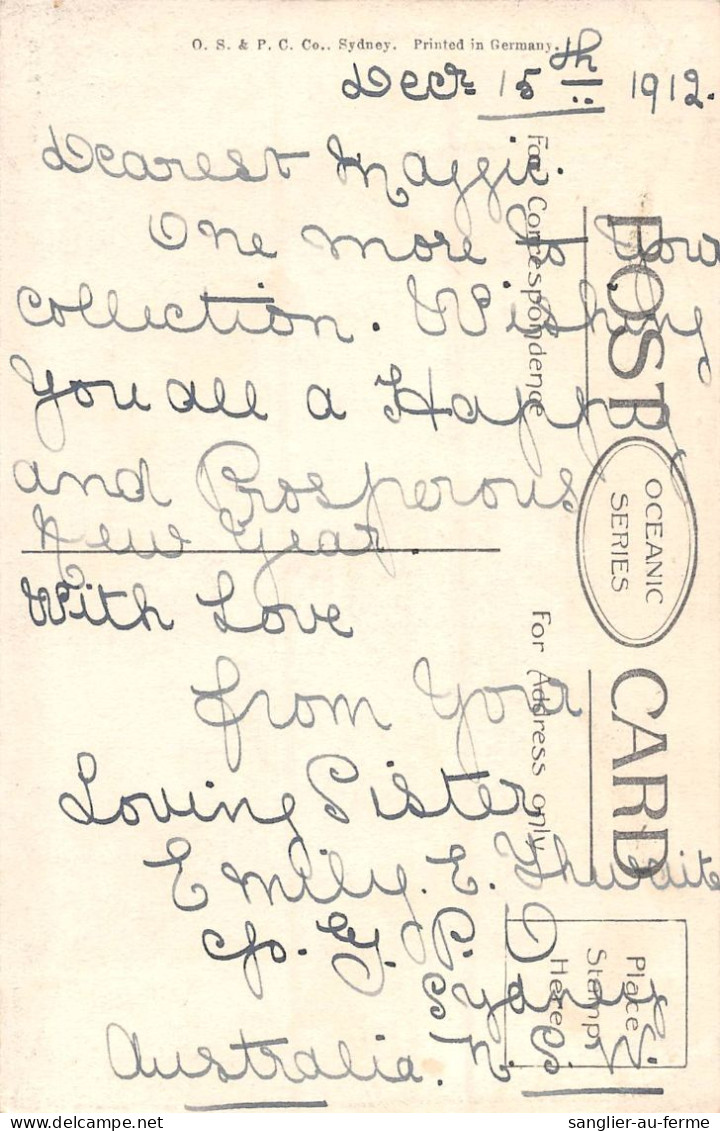 O. S. & P. C. Co., Sydney. Printed in Germany.
Decr 15th 1912.
Dearest Maggie.
One more to your
collection. Wishing
you all a Happy
and Prosperous
New Year.
With Love
from Your
Loving Sister
Emily. E.
c/o. G. P. O
Sydney
Australia. N. S. W.
For Correspondence
POST CARD
OCEANIC
SERIES
For Address only
Place
Stamp
Here
sanglier-au-ferme